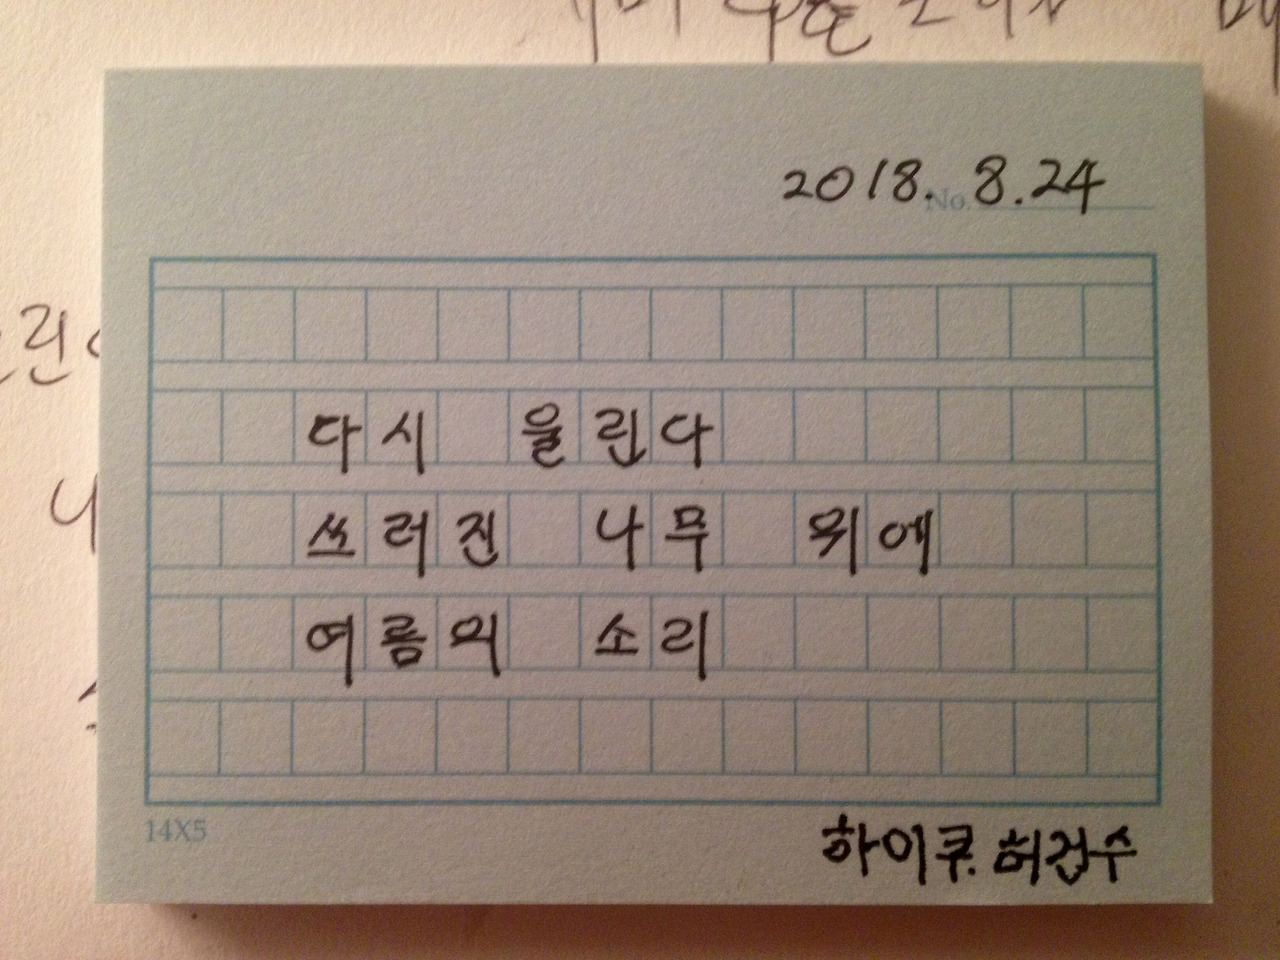 2018. 8.24
No.
다시 울린다
쓰러진 나무 위에
여름의 소리
14X5
하이쿠. 허건수